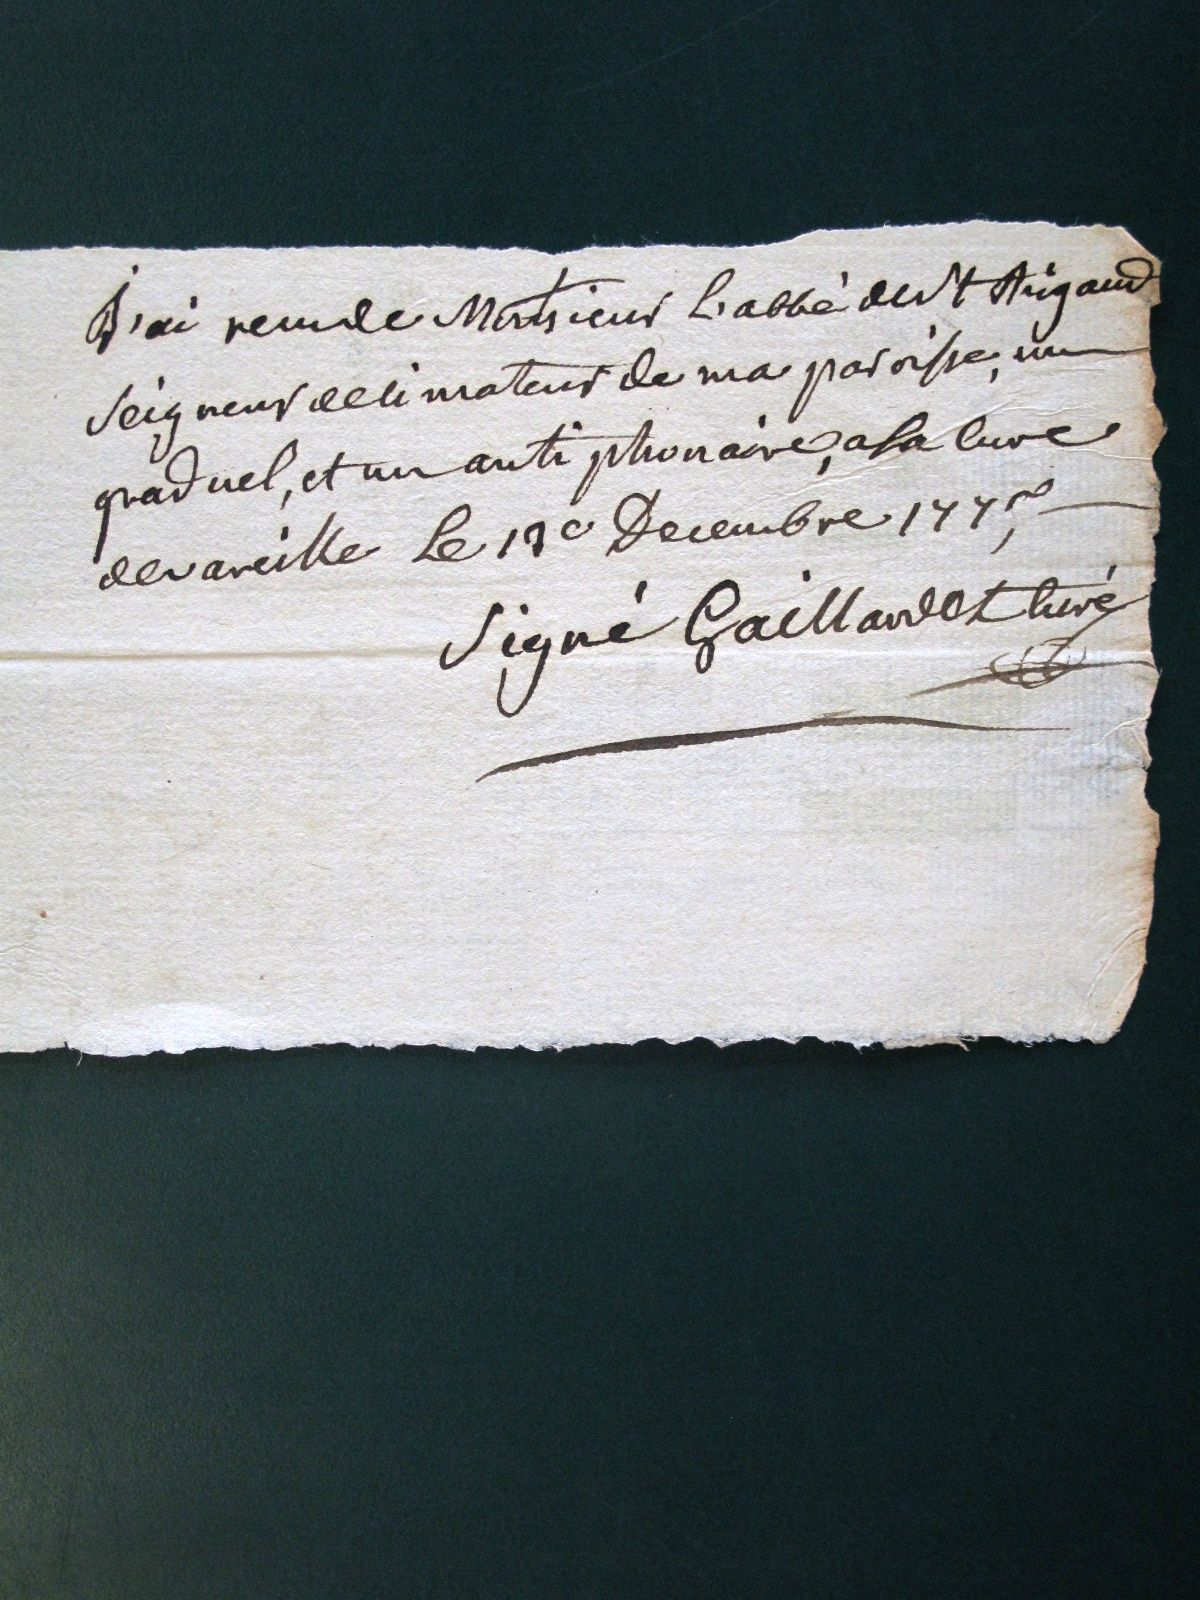 J'ai reçu de Monsieur L'abbé de St Rigaud
Seigneur decimateur de ma paroisse, un
graduel, et un antiphonaire, a la cure
de vareille Le 18e Decembre 1775
Signé Gaillardet Curé